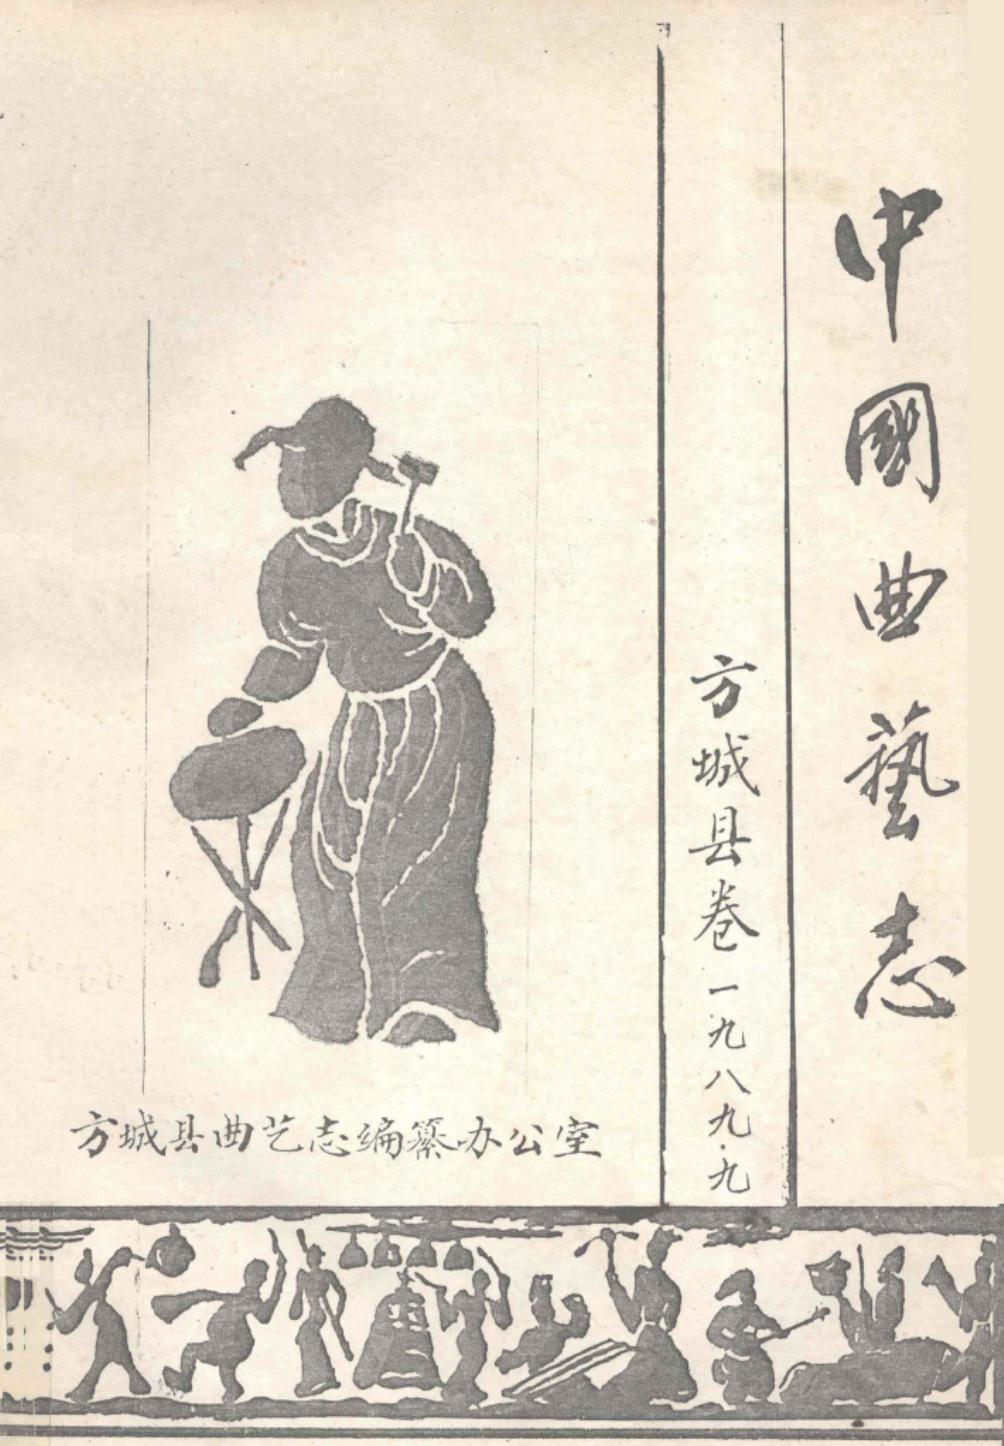 中國曲藝志
方城县卷 一九八九·九
方城县曲艺志编纂办公室